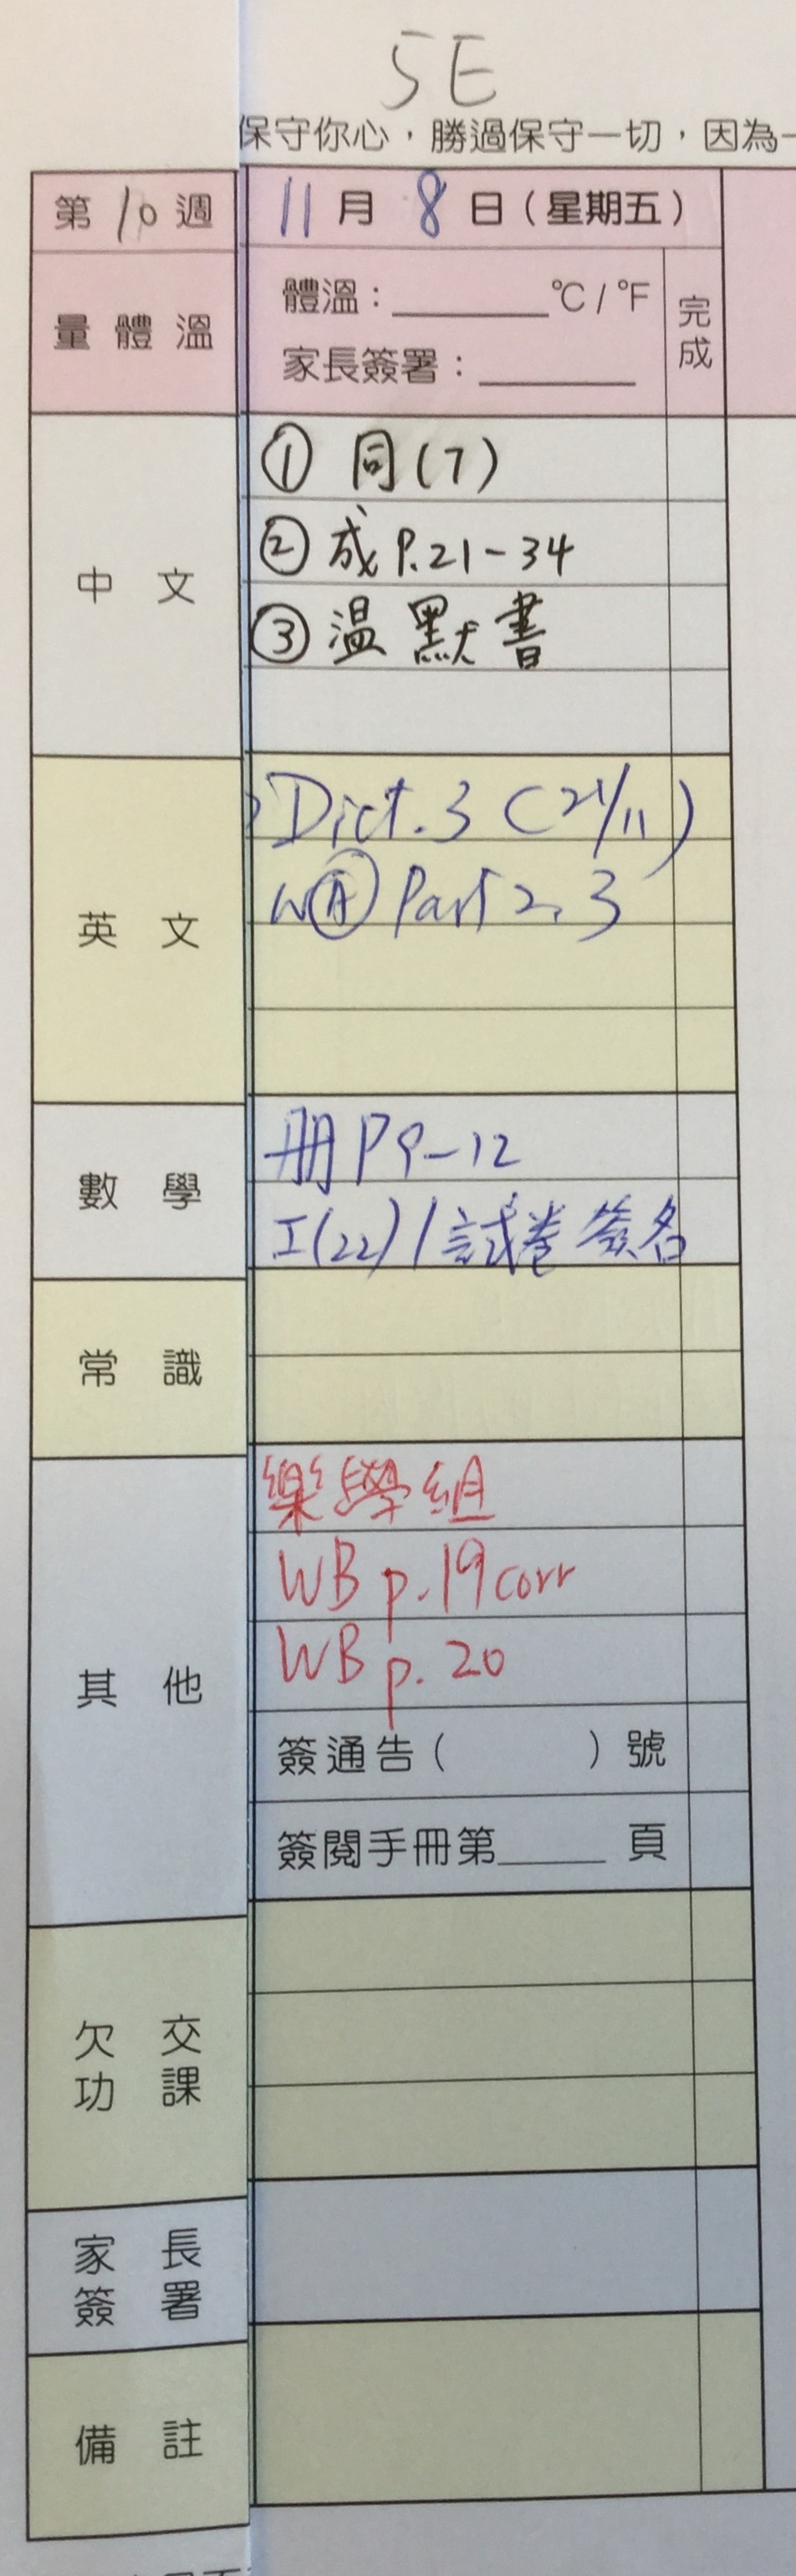 5E
保守你心，勝過保守一切，因為一
第10週 11月8日（星期五）
量體溫 體溫：________°C / °F 完成
家長簽署：________
中文 ① 同(7)
② 成 P.21-34
③ 温默書
英文 Dict. 3 (21/11)
W(A) Part 2, 3
數學 册 P9-12
I(22) / 試卷簽名
常識
其他 樂學組
WB p.19 corr
WB p.20
簽通告（ ）號
簽閱手冊第_____頁
欠交功課
家長簽署
備註